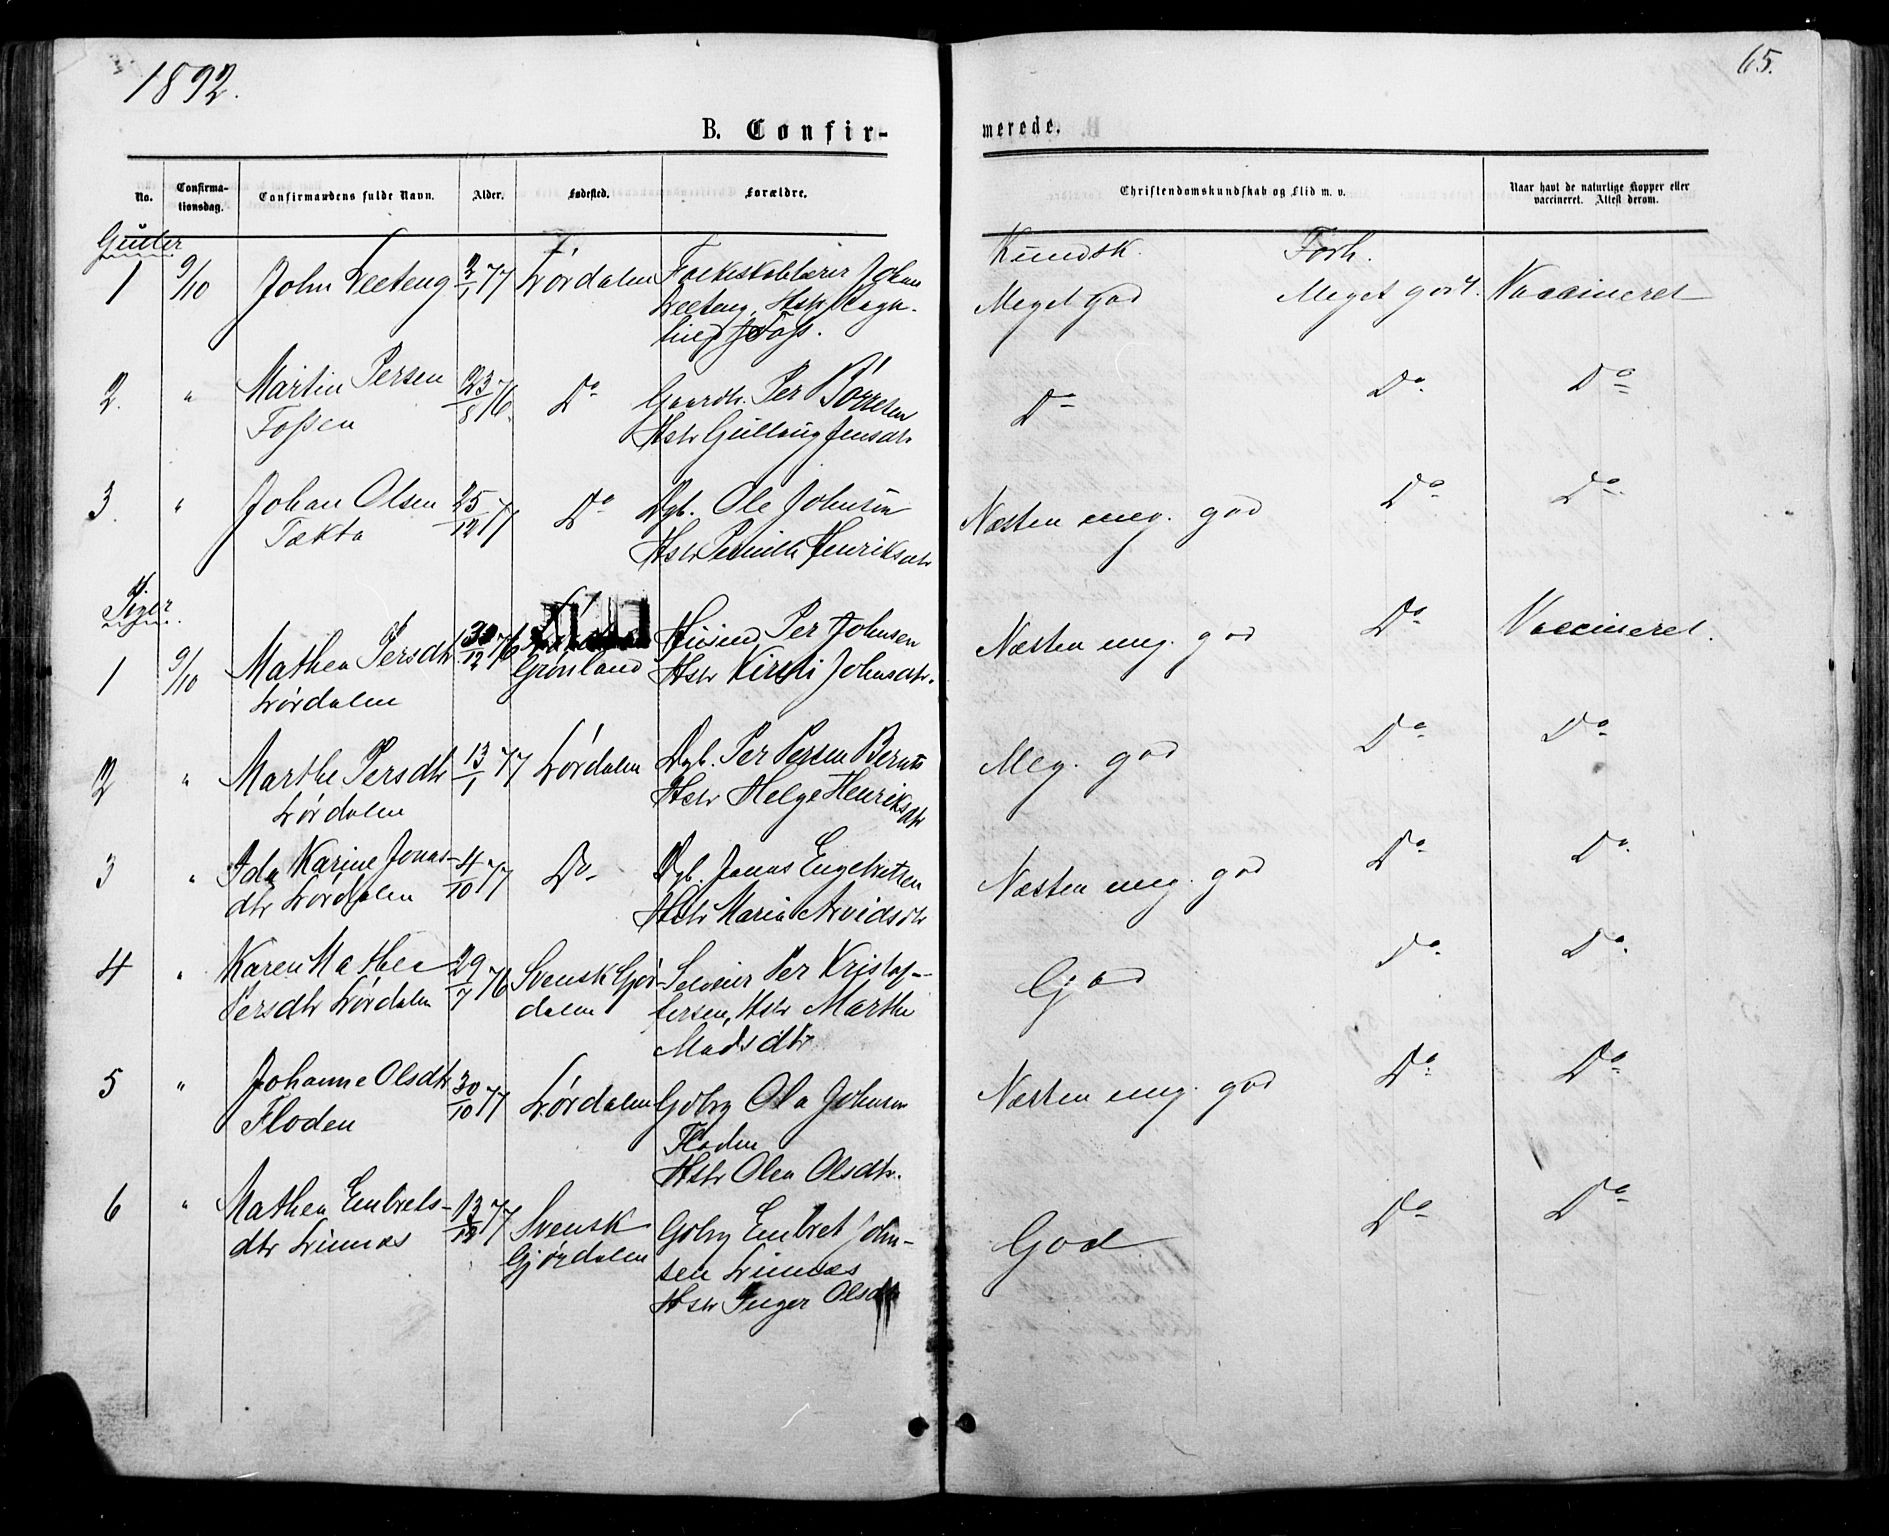 1892.
65.
B. Confir-
merede.
No.
Confirma-
tionsdag.
Confirmandens fulde Navn.
Alder.
Fødested.
Forældre.
Christendomskundskab og Flid m. v.
Naar havt de naturlige Kopper eller
vaccineret. Attest derom.
Gutter
Kundsk.
Forh.
1 9/10 John Veeteng 2/1 77 Lørdalen
Johan
Veeteng, Hstr
Foss.
Meget god
Meget godt.
Vaccineret
2. " Martin Persen
Fossen
23/8 76.
Do
Gaardb. Per Börresen
Hstr Gullaug Jensdtr
Do
Do.
Do
3. " Johan Olsen
Tækta
25/12 77
Do
Dgb. Ole Johnsen
Hstr Pernille Henriksdtr
Næsten meg. god
Do
Do.
Piger
1 9/10 Mathea Persdtr
Lørdalen
30/12 76
Grönland
Husmd Per Johnsen
Hstr Kirsti Johnsdtr.
Næsten meg. god
Do
Vaccineret.
2 " Marthe Persdtr
Lørdalen
13/1 77
Lørdalen
Dgb. Per Persen
Hstr Helge Henriksdtr
Meg. god
Do
Do
3 " Ida Karine Jonas-
dtr Lørdalen
4/10 77
Do
Dgb. Jonas Engebretsen
Hstr Maria Arvidsdtr
Næsten meg. god
Do
Do.
4 " Karen Mathea
Persdtr Lørdalen
29/7 76
Svensk Gjör-
dalen
Per Kristof-
fersen, Hstr Marthe
Madsdtr
God
Do
Do.
5 " Johanne Olsdtr
Floden
30/10 77
Lørdalen
Gbrg Ola Johnsen
Floden
Hstr Olea Olsdtr.
Næsten meg. god
Do
Do
6 " Mathea Embrets-
dtr Linnæs
13/12 77
Svensk
Gjördalen
Gbrg Embret John-
sen Linnæs
Hstr Inger Olsdtr
God
Do
Do